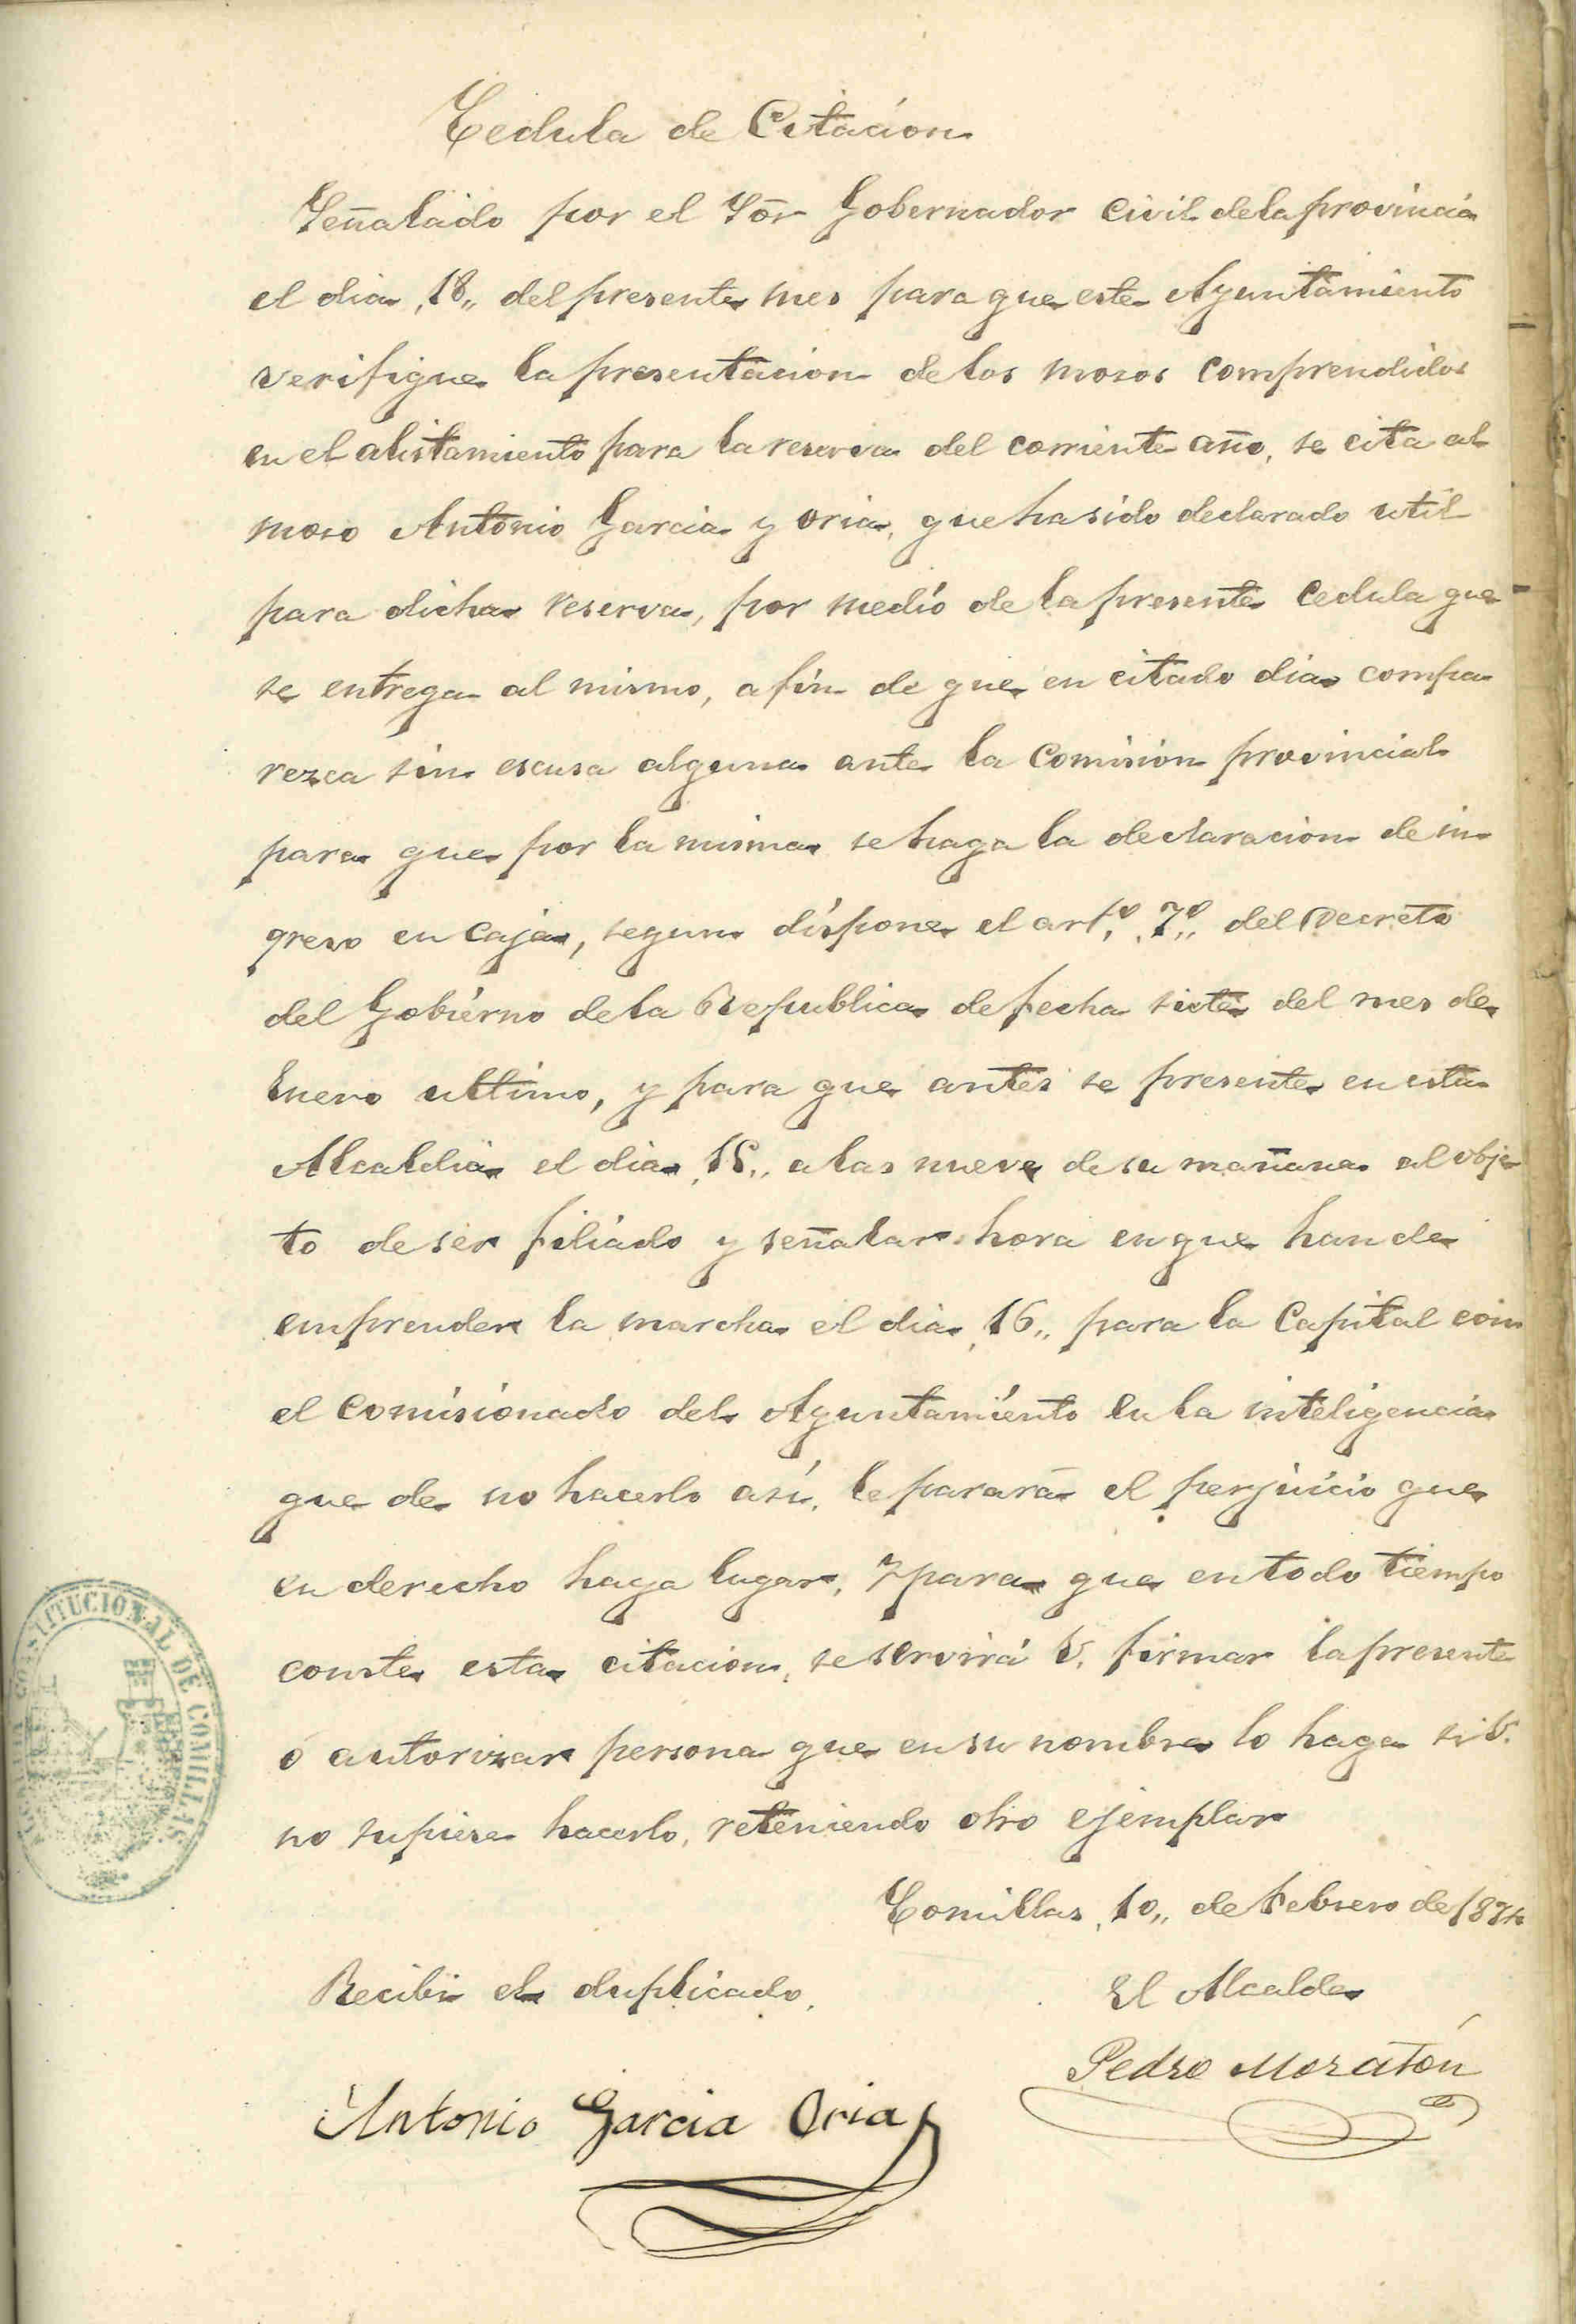 Cedula de Citación
Señalado por el Sōr Gobernador Civil de la provincia
el dia „18„ del presente mes para que este Ayuntamiento
verifique la presentacion de los mosos comprendidos
en el alistamiento para la reserva del corriente año, se cita al
moso Antonio Garcia y Oria, que ha sido declarado util
para dicha reserva, por medio de la presente Cedula que
se entrega al mismo, a fin de que en citado dia compa
rezca sin escusa alguna ante la Comision provincial
para que por la misma se haga la declaracion de in
greso en Caja, segun dispone el artº. 7º„ del Decreto
del Gobierno de la Republica de fecha siete del mes de
Enero ultimo, y para que antes se presente en esta
Alcaldia el dia „15„ a las nueve de su mañana al obje
to de ser filiado y señalar hora en que han de
emprender la marcha el dia „16„ para la Capital con
el Comisionado del Ayuntamiento en la inteligencia
que de no hacerlo asi, le parará el perjuicio que
en derecho haga lugar, Y para que en todo tiempo
conste esta citacion, se servirá V. firmar la presente
ó autorizar persona que en su nombre lo haga si V.
no supiere hacerlo, reteniendo otro ejemplar
Comillas „10„ de Febrero de 1874
Recibi el duplicado,
El Alcalde
Pedro Moratón
Antonio Garcia Oria
CONSTITUCIONAL DE COMILLAS